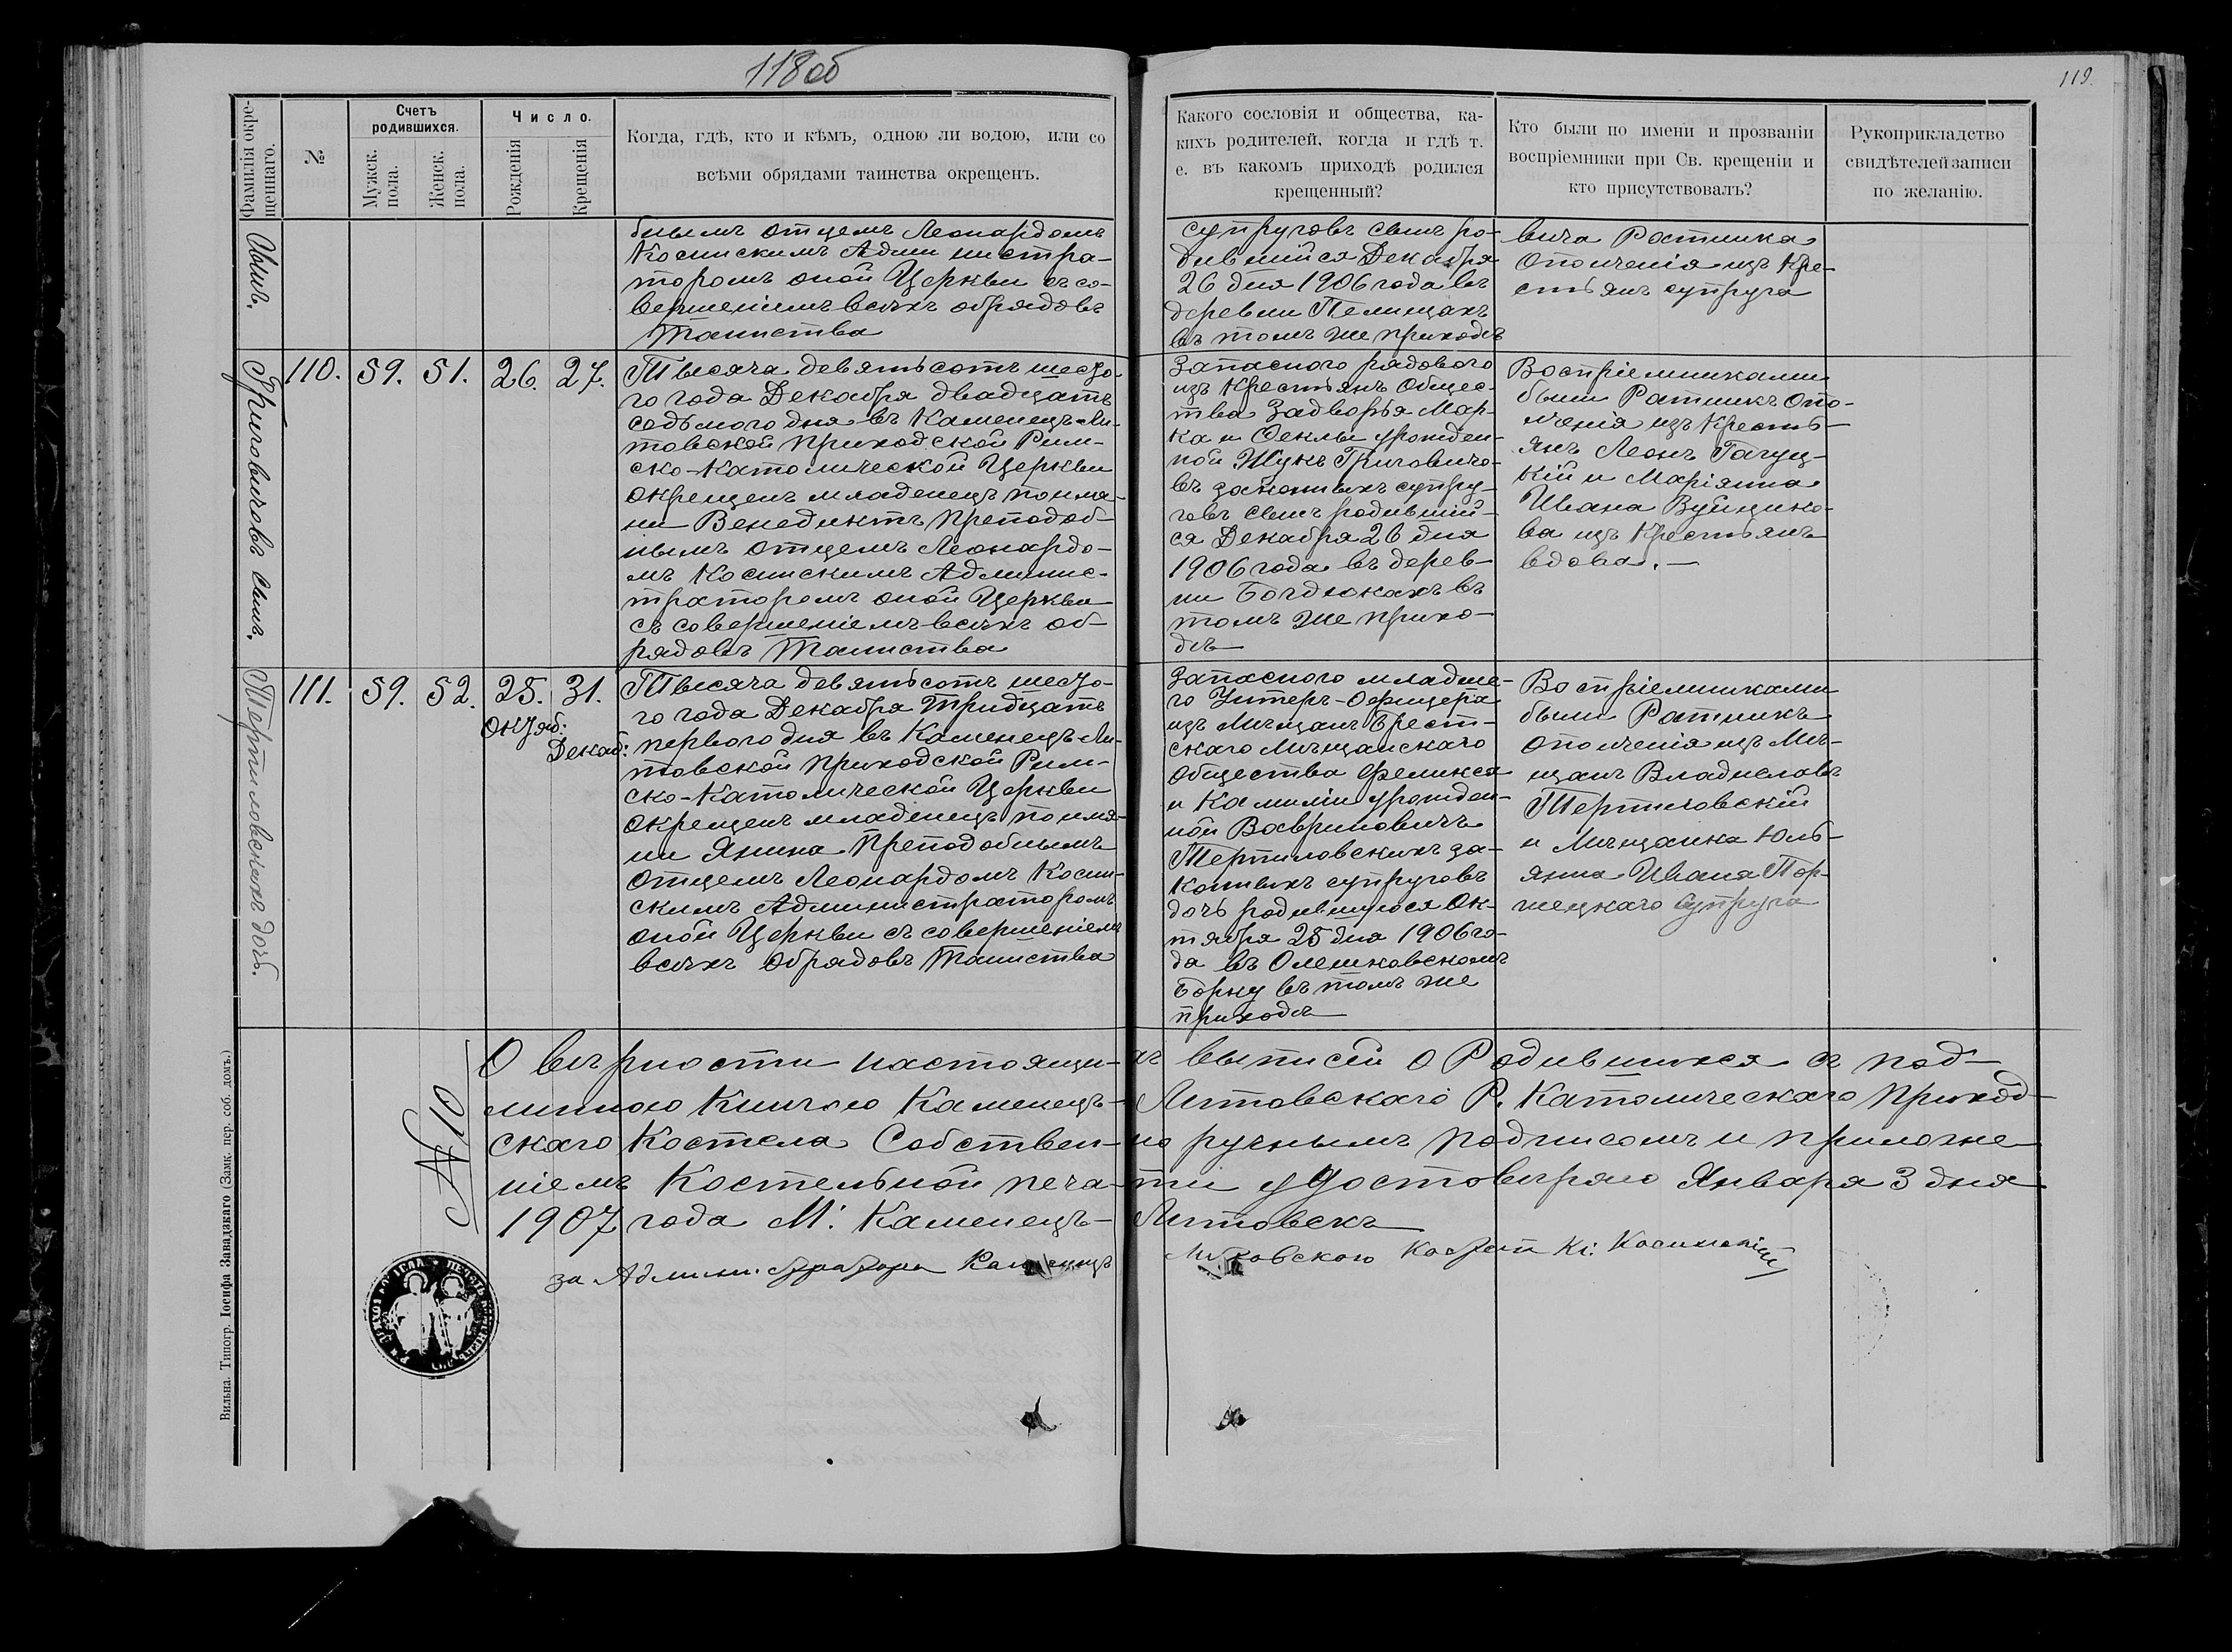 118об
119.
Фамилія окре-
щеннаго.
№
Счетъ
родившихся.
Мужск.
пола.
Женск.
пола.
Число.
Рожденія
Крещенія
Когда, гдѣ, кто и кѣмъ, одною ли водою, или со
всѣми обрядами таинства окрещенъ.
Какого сословія и общества, ка-
кихъ родителей, когда и гдѣ т.
е. въ какомъ приходѣ родился
крещенный?
Кто были по имени и прозванію
воспріемники при Св. крещеніи и
кто присутствовалъ?
Рукоприкладство
свидѣтелей записи
по желанію.
бнымъ отцемъ Леонардомъ
Косинскимъ Админ нистра-
торомъ оной Церкви съ со-
вершеніемъ всѣхъ обрядовъ
Таинства
супруговъ сынъ ро-
дившійся Декабря
26 дня 1906 года въ
деревни Пелищахъ
въ томъ же приходѣ
вича Ратника
Ополченія изъ Кре-
стьянъ супруга
Григовичовъ сынъ.
110.
59.
51.
26.
27.
Тысяча девятьсотъ шесто-
го года Декабря двадцать
седьмого дня въ Каменецъ-Ли-
товской приходской Рим-
ско-Католической Церкви
окрещенъ младенецъ по имя-
ни Венедиктъ Преподоб-
нымъ отцемъ Леонардо-
мъ Косинскимъ Админис-
траторомъ оной Церкви
съ совершеніемъ всѣхъ об-
рядовъ Таинства
Запасного рядового
изъ Крестьянъ Общес-
тва Задворья Мар-
ка и Феклы урожден-
ной Жукъ Григовичо-
въ законныхъ супру-
говъ сынъ родивший-
ся Декабря 26 дня
1906 года въ дерев-
ни Богдюкахъ въ
томъ же прихо-
дѣ
Воспріемниками
были Ратникъ Опо-
лченія изъ Кресть-
янъ Леонъ Гагуц-
кій и Маріянна
Ивана Вуйцико-
ва изъ Крестьянъ
вдова.
Терпиловскихъ дочь.
111.
59.
52.
25.
31.
Октяб:
Декаб:
Тысяча девятьсотъ шесто-
го года Декабря Тридцать
перваго дня въ Каменецъ Ли-
товской приходской Рим-
ско-Католической Церкви
окрещенъ младенецъ по имя-
ни Янина Преподобнымъ
Отцемъ Леонардомъ Косин-
скимъ Администраторомъ
оной Церкви съ совершеніемъ
всѣхъ Обрядовъ Таинства
Запасного младше-
го Унтеръ-Офицера
изъ Мѣщанъ Брест-
скаго Мѣщанскаго
Общества Феликса
и Камиліи урожден-
ной Вавриновичъ
Терпиловскихъ за-
конныхъ супруговъ
дочь родившуюся Ок-
тября 25 дня 1906 го-
да въ Олешковскомъ
Борку въ томъ же
приходѣ
Воспріемниками
были Ратникъ
Ополченія изъ Мѣ-
щанъ Владиславъ
Терпиловскій
и Мѣщанка Юль-
янна Ивана Тор-
жецкаго Супруга
О вѣрности настоящи-хъ выписей о Родившихся съ под-
линною Книгою Каменецъ-Литовскаго Р. Католическаго Приход-
скаго Костела Собствен-но ручнымъ подписомъ и приложе
ніемъ Костельной печа-ти удостовѣряю Января 3 дня
1907 года М: Каменецъ-Литовскъ
№ 10
за Админи: стратора Каменецъ Литовского Костела Кс: Косинскій
Вильна. Типогр. Іосифа Завадзкаго (Замк. пер. соб. домъ.)